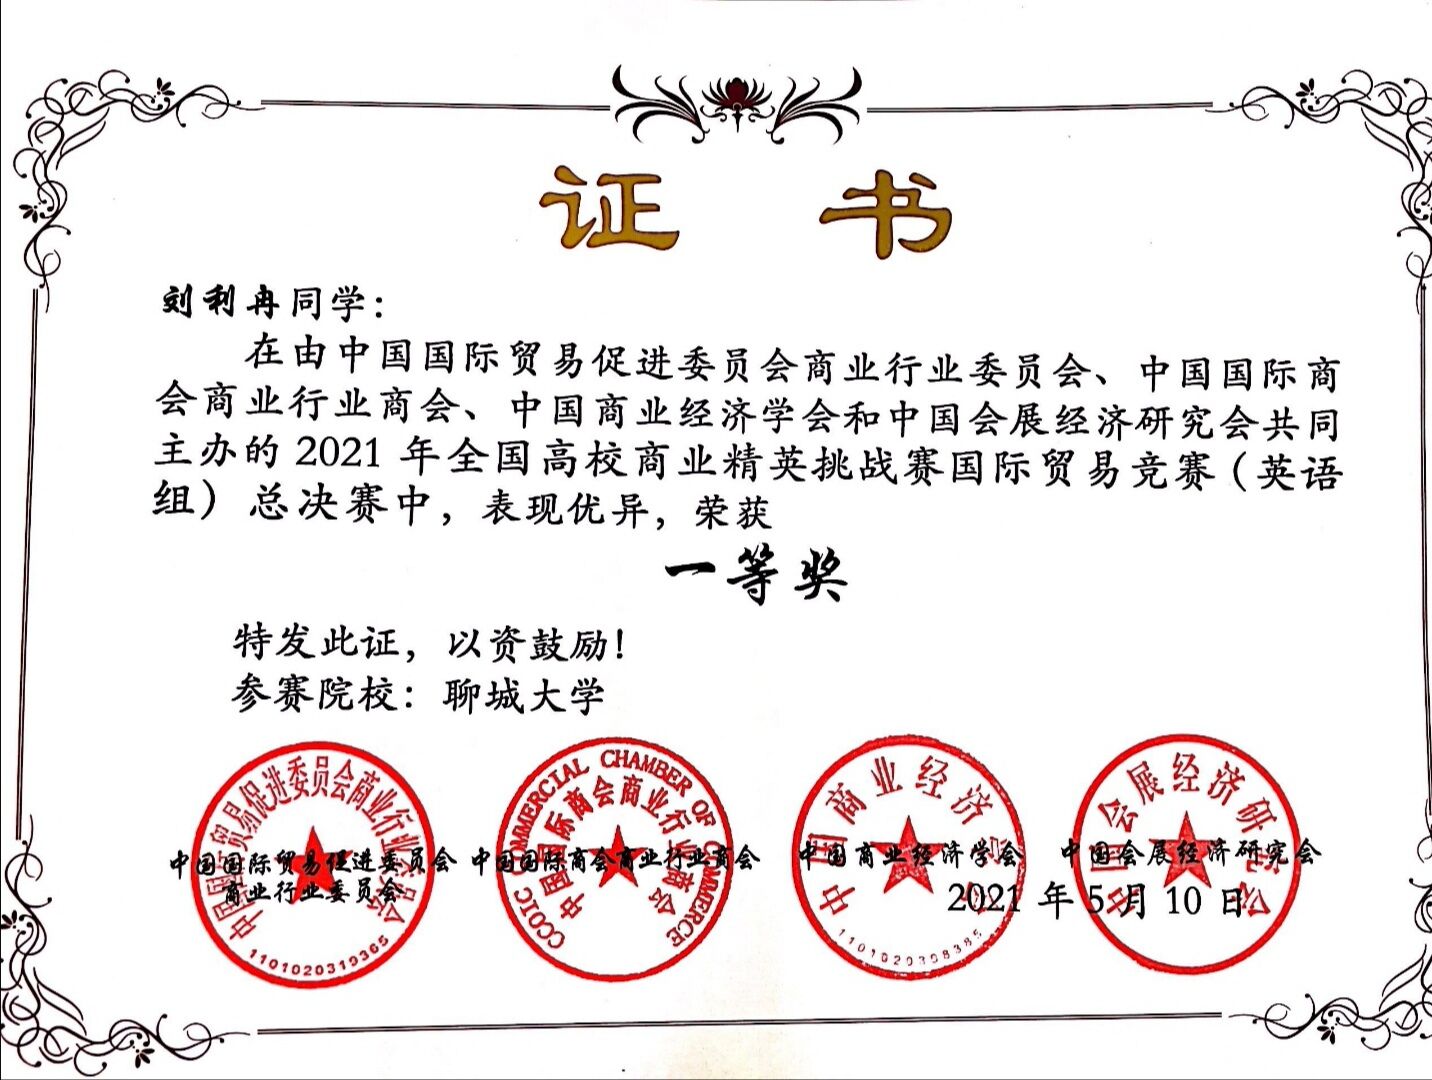 证 书
刘利冉同学：
在由中国国际贸易促进委员会商业行业委员会、中国国际商
会商业行业商会、中国商业经济学会和中国会展经济研究会共同
主办的 2021 年全国高校商业精英挑战赛国际贸易竞赛（英语
组）总决赛中，表现优异，荣获
一等奖
特发此证，以资鼓励！
参赛院校：聊城大学
中国国际贸易促进委员会商业行业委员会
1101020319365
CCOIC COMMERCIAL CHAMBER OF COMMERCE
中国国际商会商业行业商会
中国商业经济学会
中国会展经济研究会
中国国际贸易促进委员会
商业行业委员会
中国国际商会商业行业商会
中国商业经济学会
中国会展经济研究会
2021 年 5 月 10 日